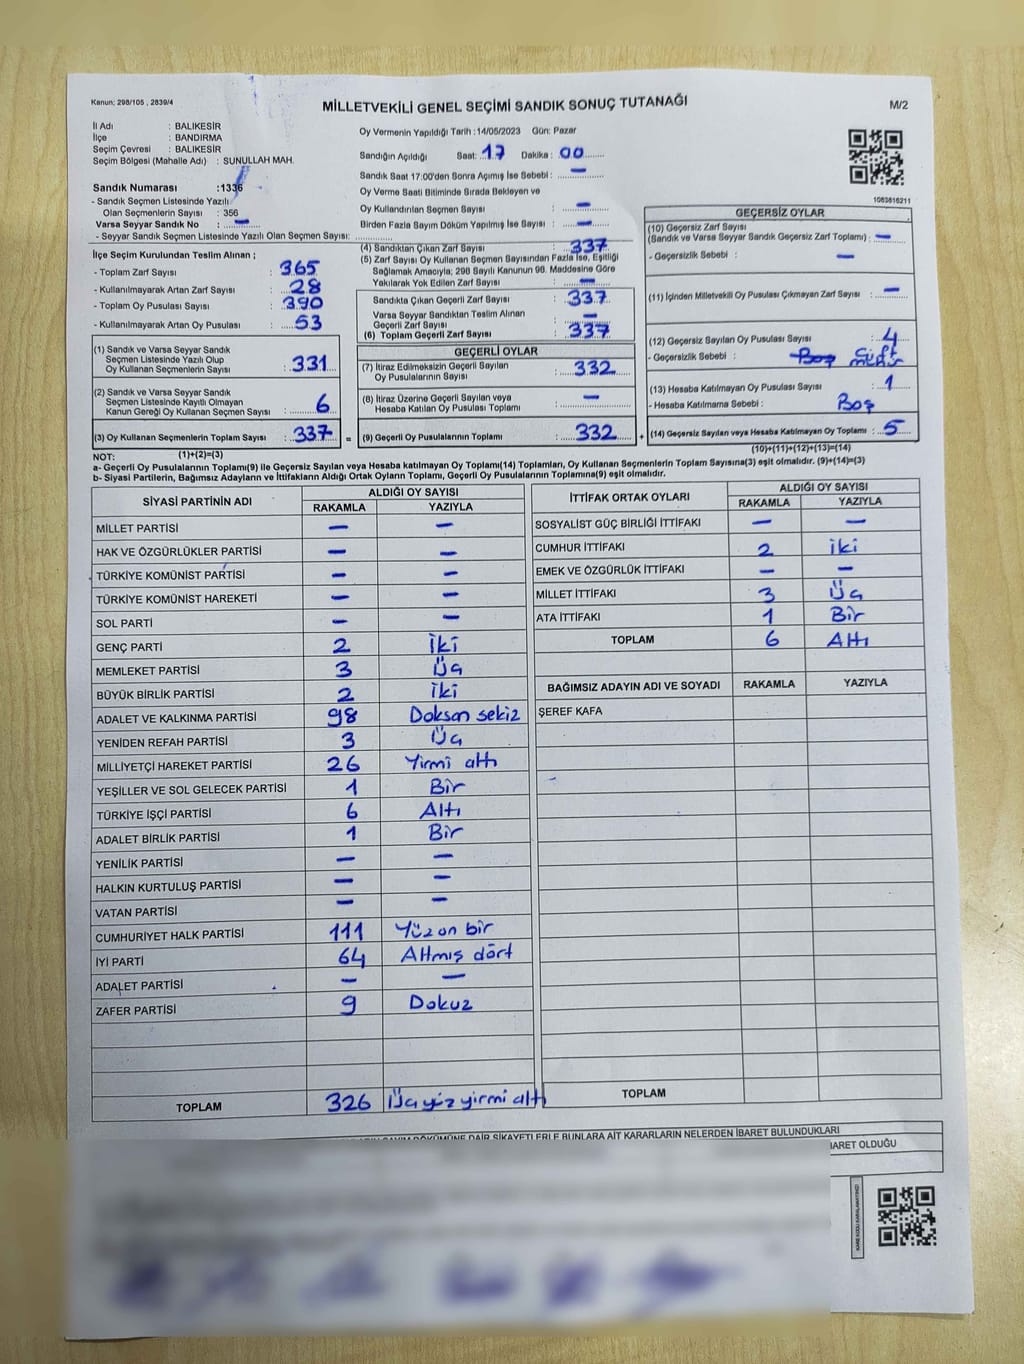 Kanun: 298/105 , 2839/4
MİLLETVEKİLİ GENEL SEÇİMİ SANDIK SONUÇ TUTANAĞI
M/2
İl Adı : BALIKESİR
İlçe : BANDIRMA
Seçim Çevresi : BALIKESİR
Seçim Bölgesi (Mahalle Adı) : SUNULLAH MAH.
Sandık Numarası :1336
- Sandık Seçmen Listesinde Yazılı
Olan Seçmenlerin Sayısı : 356
Varsa Seyyar Sandık No : —
- Seyyar Sandık Seçmen Listesinde Yazılı Olan Seçmen Sayısı:
İlçe Seçim Kurulundan Teslim Alınan ;
- Toplam Zarf Sayısı : 365
- Kullanılmayarak Artan Zarf Sayısı : 28
- Toplam Oy Pusulası Sayısı : 390
- Kullanılmayarak Artan Oy Pusulası : 53
(1) Sandık ve Varsa Seyyar Sandık
Seçmen Listesinde Yazılı Olup
Oy Kullanan Seçmenlerin Sayısı : 331
(2) Sandık ve Varsa Seyyar Sandık
Seçmen Listesinde Kayıtlı Olmayan
Kanun Gereği Oy Kullanan Seçmen Sayısı : 6
(3) Oy Kullanan Seçmenlerin Toplam Sayısı : 337 =
Oy Vermenin Yapıldığı Tarih : 14/05/2023 Gün: Pazar
Sandığın Açıldığı Saat: 17 Dakika : 00
Sandık Saat 17:00'den Sonra Açılmış İse Sebebi : —
Oy Verme Saati Bitiminde Sırada Bekleyen ve
Oy Kullandırılan Seçmen Sayısı : —
Birden Fazla Sayım Döküm Yapılmış İse Sayısı : —
(4) Sandıktan Çıkan Zarf Sayısı : 337
(5) Zarf Sayısı Oy Kullanan Seçmen Sayısından Fazla İse, Eşitliği
Sağlamak Amacıyla, 298 Sayılı Kanunun 98. Maddesine Göre
Yakılarak Yok Edilen Zarf Sayısı : —
Sandıkta Çıkan Geçerli Zarf Sayısı : 337
Varsa Seyyar Sandıktan Teslim Alınan
Geçerli Zarf Sayısı : —
(6) Toplam Geçerli Zarf Sayısı : 337
GEÇERLİ OYLAR
(7) İtiraz Edilmeksizin Geçerli Sayılan
Oy Pusulalarının Sayısı : 332
(8) İtiraz Üzerine Geçerli Sayılan veya
Hesaba Katılan Oy Pusulası Toplamı : —
(9) Geçerli Oy Pusulalarının Toplamı : 332 +
1063616211
GEÇERSİZ OYLAR
(10) Geçersiz Zarf Sayısı
(Sandık ve Varsa Seyyar Sandık Geçersiz Zarf Toplamı) : —
- Geçersizlik Sebebi : —
(11) İçinden Milletvekili Oy Pusulası Çıkmayan Zarf Sayısı : —
(12) Geçersiz Sayılan Oy Pusulası Sayısı : 4
- Geçersizlik Sebebi : Boş Çift mühür
(13) Hesaba Katılmayan Oy Pusulası Sayısı : 1
- Hesaba Katılmama Sebebi : Boş
(14) Geçersiz Sayılan veya Hesaba Katılmayan Oy Toplamı : 5
NOT: (1)+(2)=(3) (10)+(11)+(12)+(13)=(14)
a- Geçerli Oy Pusulalarının Toplamı(9) ile Geçersiz Sayılan veya Hesaba katılmayan Oy Toplamı(14) Toplamları, Oy Kullanan Seçmenlerin Toplam Sayısına(3) eşit olmalıdır. (9)+(14)=(3)
b- Siyasi Partilerin, Bağımsız Adayların ve İttifakların Aldığı Ortak Oyların Toplamı, Geçerli Oy Pusulalarının Toplamına(9) eşit olmalıdır.
SİYASİ PARTİNİN ADI ALDIĞI OY SAYISI
RAKAMLA YAZIYLA
MİLLET PARTİSİ — —
HAK VE ÖZGÜRLÜKLER PARTİSİ — —
TÜRKİYE KOMÜNİST PARTİSİ — —
TÜRKİYE KOMÜNİST HAREKETİ — —
SOL PARTİ — —
GENÇ PARTİ 2 İki
MEMLEKET PARTİSİ 3 Üç
BÜYÜK BİRLİK PARTİSİ 2 İki
ADALET VE KALKINMA PARTİSİ 98 Doksan sekiz
YENİDEN REFAH PARTİSİ 3 Üç
MİLLİYETÇİ HAREKET PARTİSİ 26 Yirmi altı
YEŞİLLER VE SOL GELECEK PARTİSİ 1 Bir
TÜRKİYE İŞÇİ PARTİSİ 6 Altı
ADALET BİRLİK PARTİSİ 1 Bir
YENİLİK PARTİSİ — —
HALKIN KURTULUŞ PARTİSİ — —
VATAN PARTİSİ — —
CUMHURİYET HALK PARTİSİ 111 Yüz on bir
İYİ PARTİ 64 Altmış dört
ADALET PARTİSİ — —
ZAFER PARTİSİ 9 Dokuz
TOPLAM 326 Üç yüz yirmi altı
İTTİFAK ORTAK OYLARI ALDIĞI OY SAYISI
RAKAMLA YAZIYLA
SOSYALİST GÜÇ BİRLİĞİ İTTİFAKI — —
CUMHUR İTTİFAKI 2 İki
EMEK VE ÖZGÜRLÜK İTTİFAKI — —
MİLLET İTTİFAKI 3 Üç
ATA İTTİFAKI 1 Bir
TOPLAM 6 Altı
BAĞIMSIZ ADAYIN ADI VE SOYADI RAKAMLA YAZIYLA
ŞEREF KAFA
TOPLAM
DÖKÜMÜNE DAİR ŞİKAYETLERLE BUNLARA AİT KARARLARIN NELERDEN İBARET BULUNDUKLARI
İBARET OLDUĞU